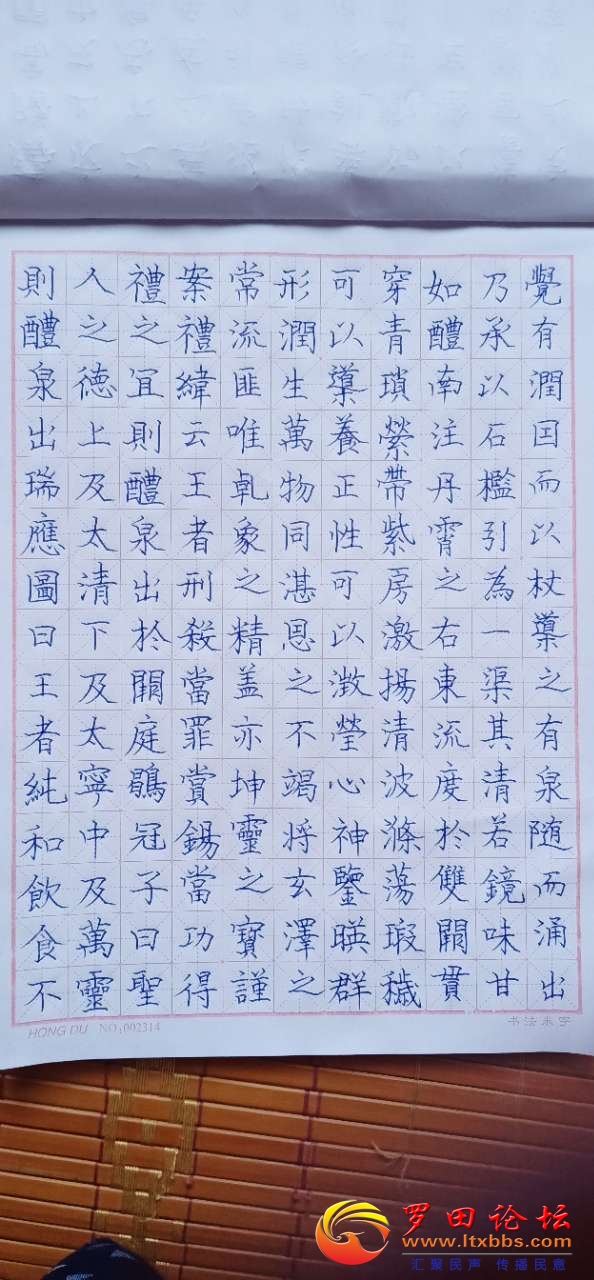 覺有潤囙而以杖導之有泉随而涌出
乃承以石檻引為一渠其清若鏡味甘
如醴南注丹霄之右東流度於雙闕貫
穿青瑣縈帶紫房激揚清波滌蕩瑕穢
可以導養正性可以澂瑩心神鑒暎群
形潤生萬物同湛恩之不竭将玄澤之
常流匪唯乹象之精盖亦坤靈之寶謹
案禮緯云王者刑殺當罪賞錫當功得
禮之冝則醴泉出於闕庭鶡冠子曰聖
人之德上及太清下及太寧中及萬靈
則醴泉出瑞應圖曰王者純和飲食不
HONG DU NO,002314
罗田论坛
www.ltxbbs.com
汇聚民声 传播民意